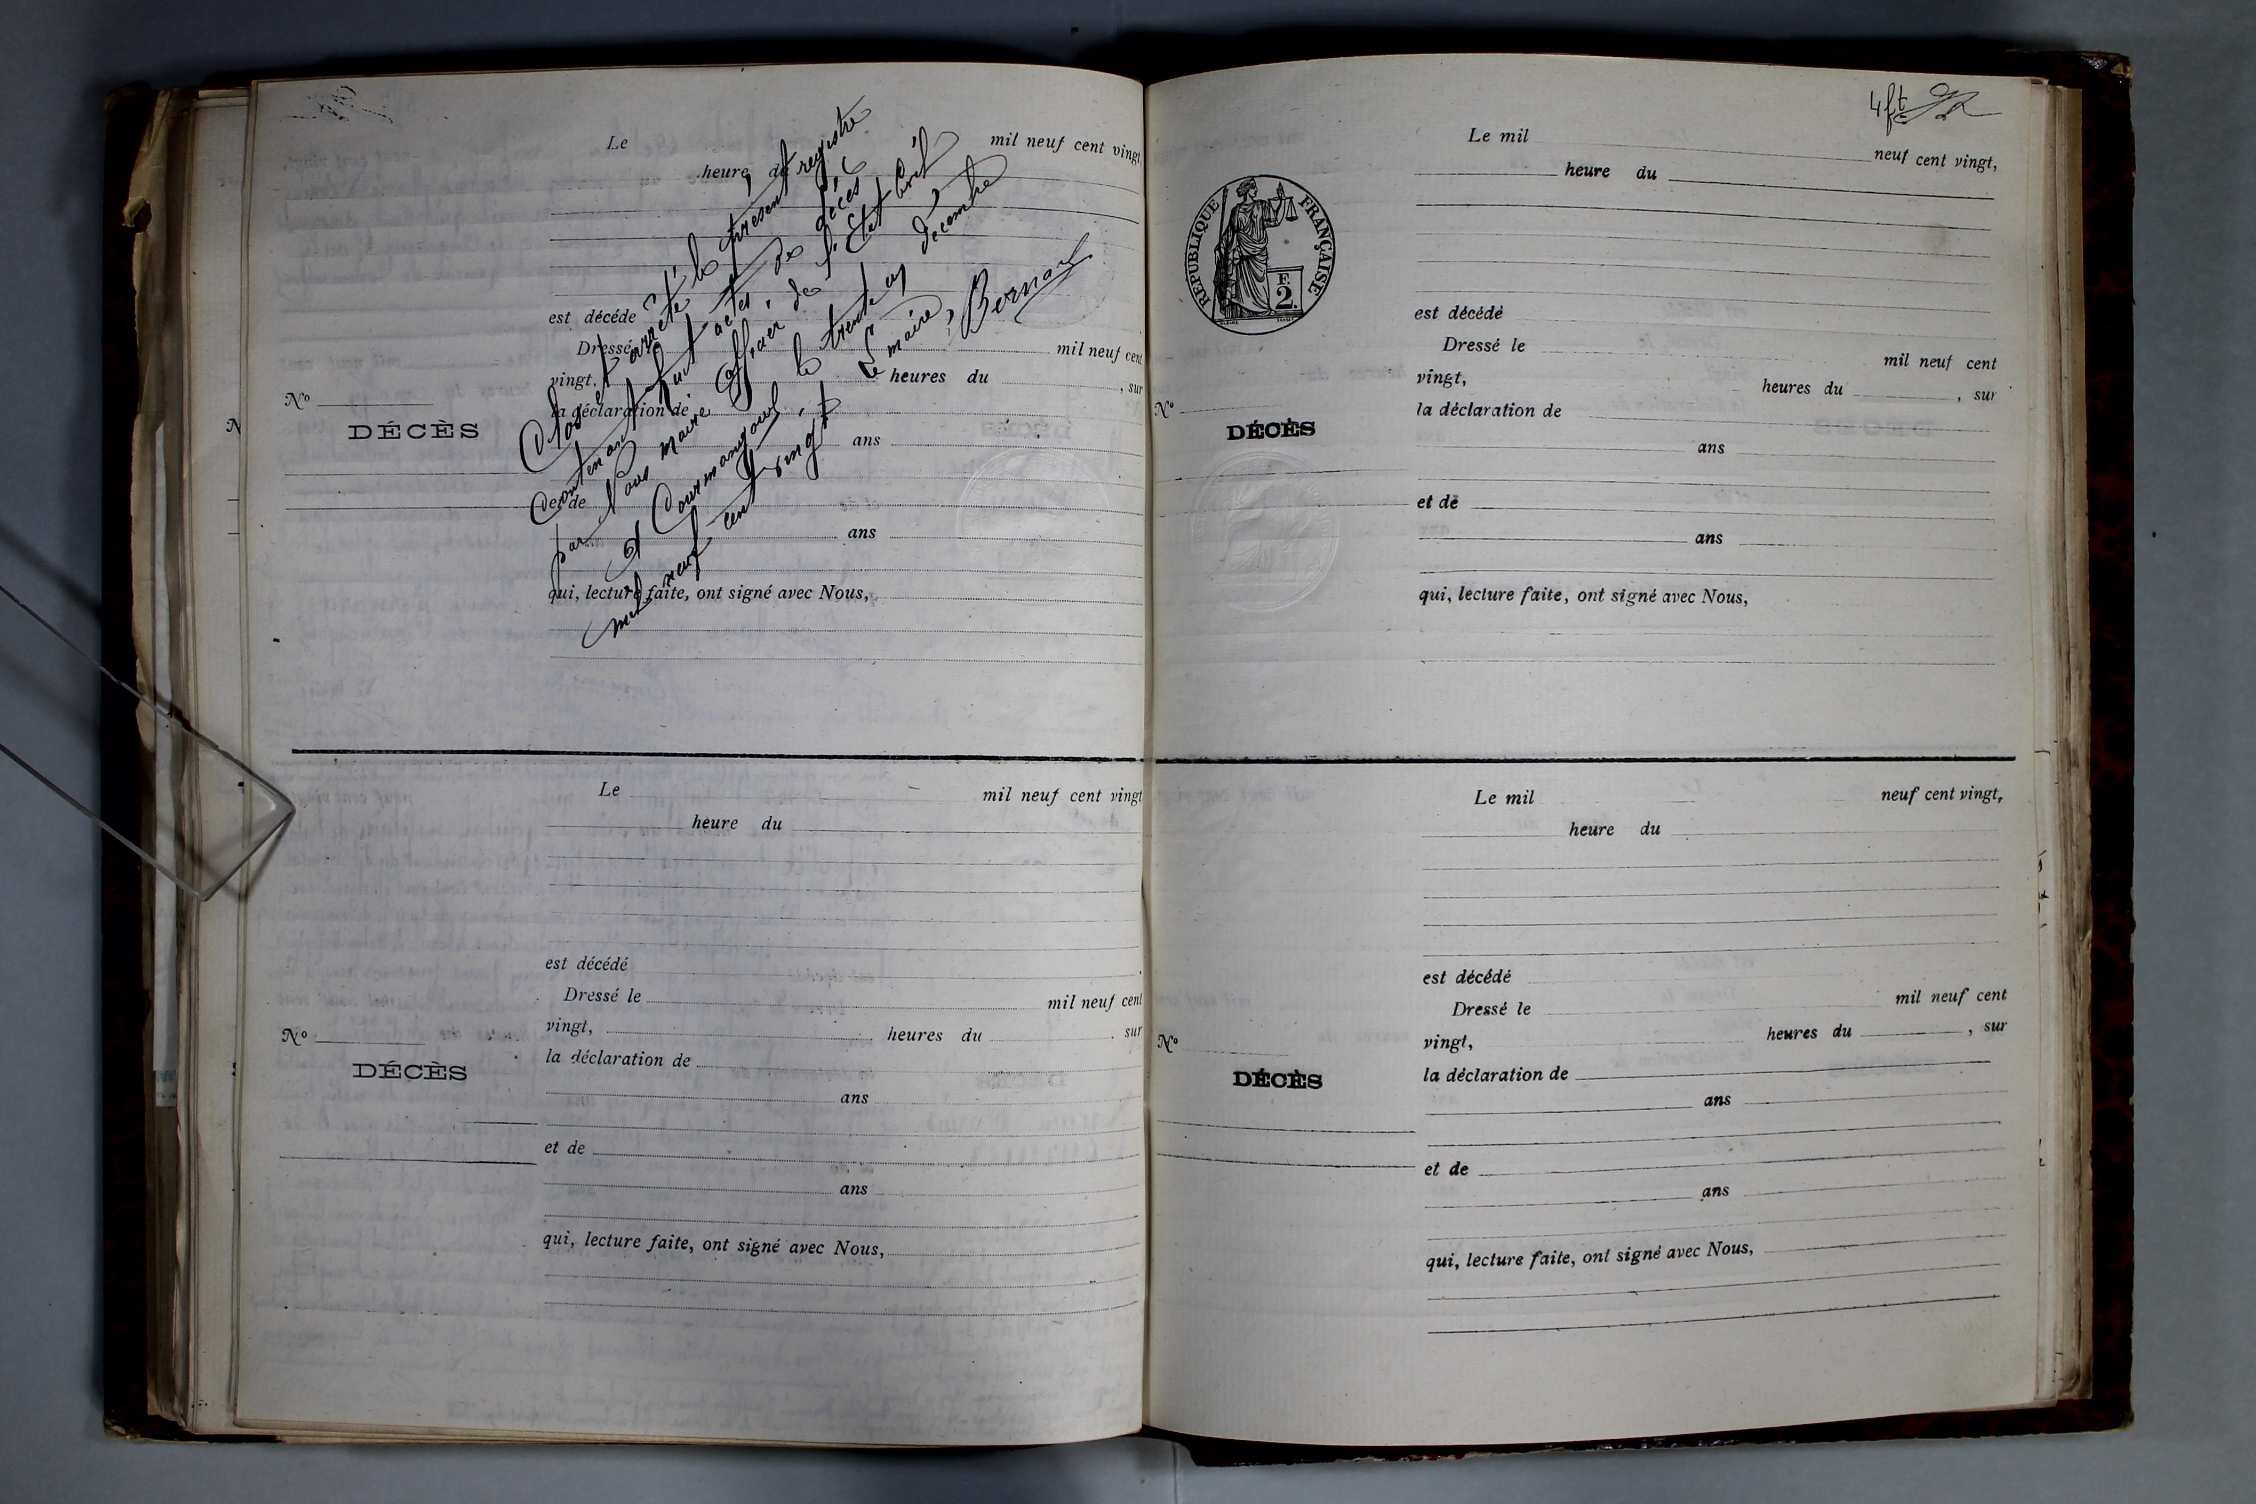 Le mil neuf cent vingt
heure du
est décédé
Dressé mil neuf cent
vingt, heures du , sur
la déclaration de
ans
et de
ans
qui, lecture faite, ont signé avec Nous,
No
DÉCÈS
Clos et arrêté le présent registre
Contenant huit actes de décès
par Nous maire officier de l'Etat Civil
de Courmangoux, le trente un décembre
mil neuf cent vingt
Le maire,
Bernard
Le mil neuf cent vingt
heure du
est décédé
Dressé le mil neuf cent
vingt, heures du , sur
No
la déclaration de
DÉCÈS
ans
et de
ans
qui, lecture faite, ont signé avec Nous,
4 ft
Le mil neuf cent vingt,
heure du
RÉPUBLIQUE FRANÇAISE
F.
2.
est décédé
Dressé le mil neuf cent
vingt, heures du , sur
No
la déclaration de
DÉCÈS
ans
et de
ans
qui, lecture faite, ont signé avec Nous,
Le mil neuf cent vingt,
heure du
est décédé
Dressé le mil neuf cent
vingt, heures du , sur
No
la déclaration de
DÉCÈS
ans
et de
ans
qui, lecture faite, ont signé avec Nous,